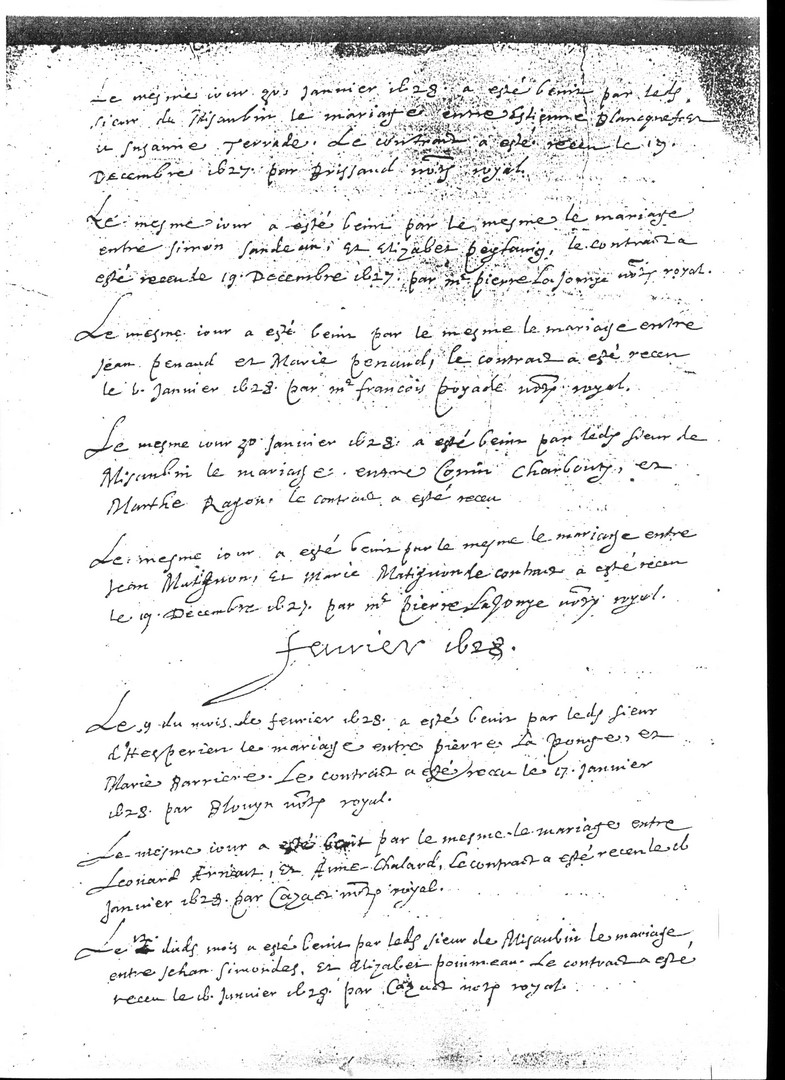 Le mesme iour 30 Janvier 1628. a esté benit par leds
sieur du Misaubin le mariage entre Estienne Blancquefort
et Susanne Terrade. Le contract a esté receu le 13.
Decembre 1627. par Brissaud notre royal.
Le mesme iour a esté benit par le mesme le mariage
entre Simon Sandeaus, Et Elizabet le contract a
esté receu le 19. Decembre 1627. par me pierre LaJonye notre royal.
Le mesme iour a esté benit par le mesme le mariage entre
Jean penaud et Marie penaud, le contract a esté receu
le 6. Janvier 1628. par me francois poyade notre royal.
Le mesme iour 30 Janvier 1628. a esté benit par leds sieur de
Misaubin le mariage. entre Charbouty, et
Marthe Rayon, le contract a esté receu
Le mesme iour a esté benit par le mesme le mariage entre
Jean Matignon, Et Marie Matignon le contract a esté receu
le 19. Decembre 1627. par me pierre LaJonye notre royal.
fevrier 1628.
Le 9 du mois de fevrier 1628. a esté benit par leds sieur
d'Hesperien le mariage entre pierre La et
Marie Barriere. Le contract a esté receu le 17. Janvier
1628. par Blouyn notre royal.
Le mesme iour a esté benit par le mesme le mariage entre
Leonard Arnaut, Et Anne Chalard, Le contract a esté receu le 16
Janvier 1628. par Cazact notre royal.
Le duds mois a esté benit par leds sieur de Misaubin le mariage
entre Jehan Simondes, Et Elizabet pommeau. Le contract a esté
receu le 16. Janvier 1628. par Cazact notre royal.